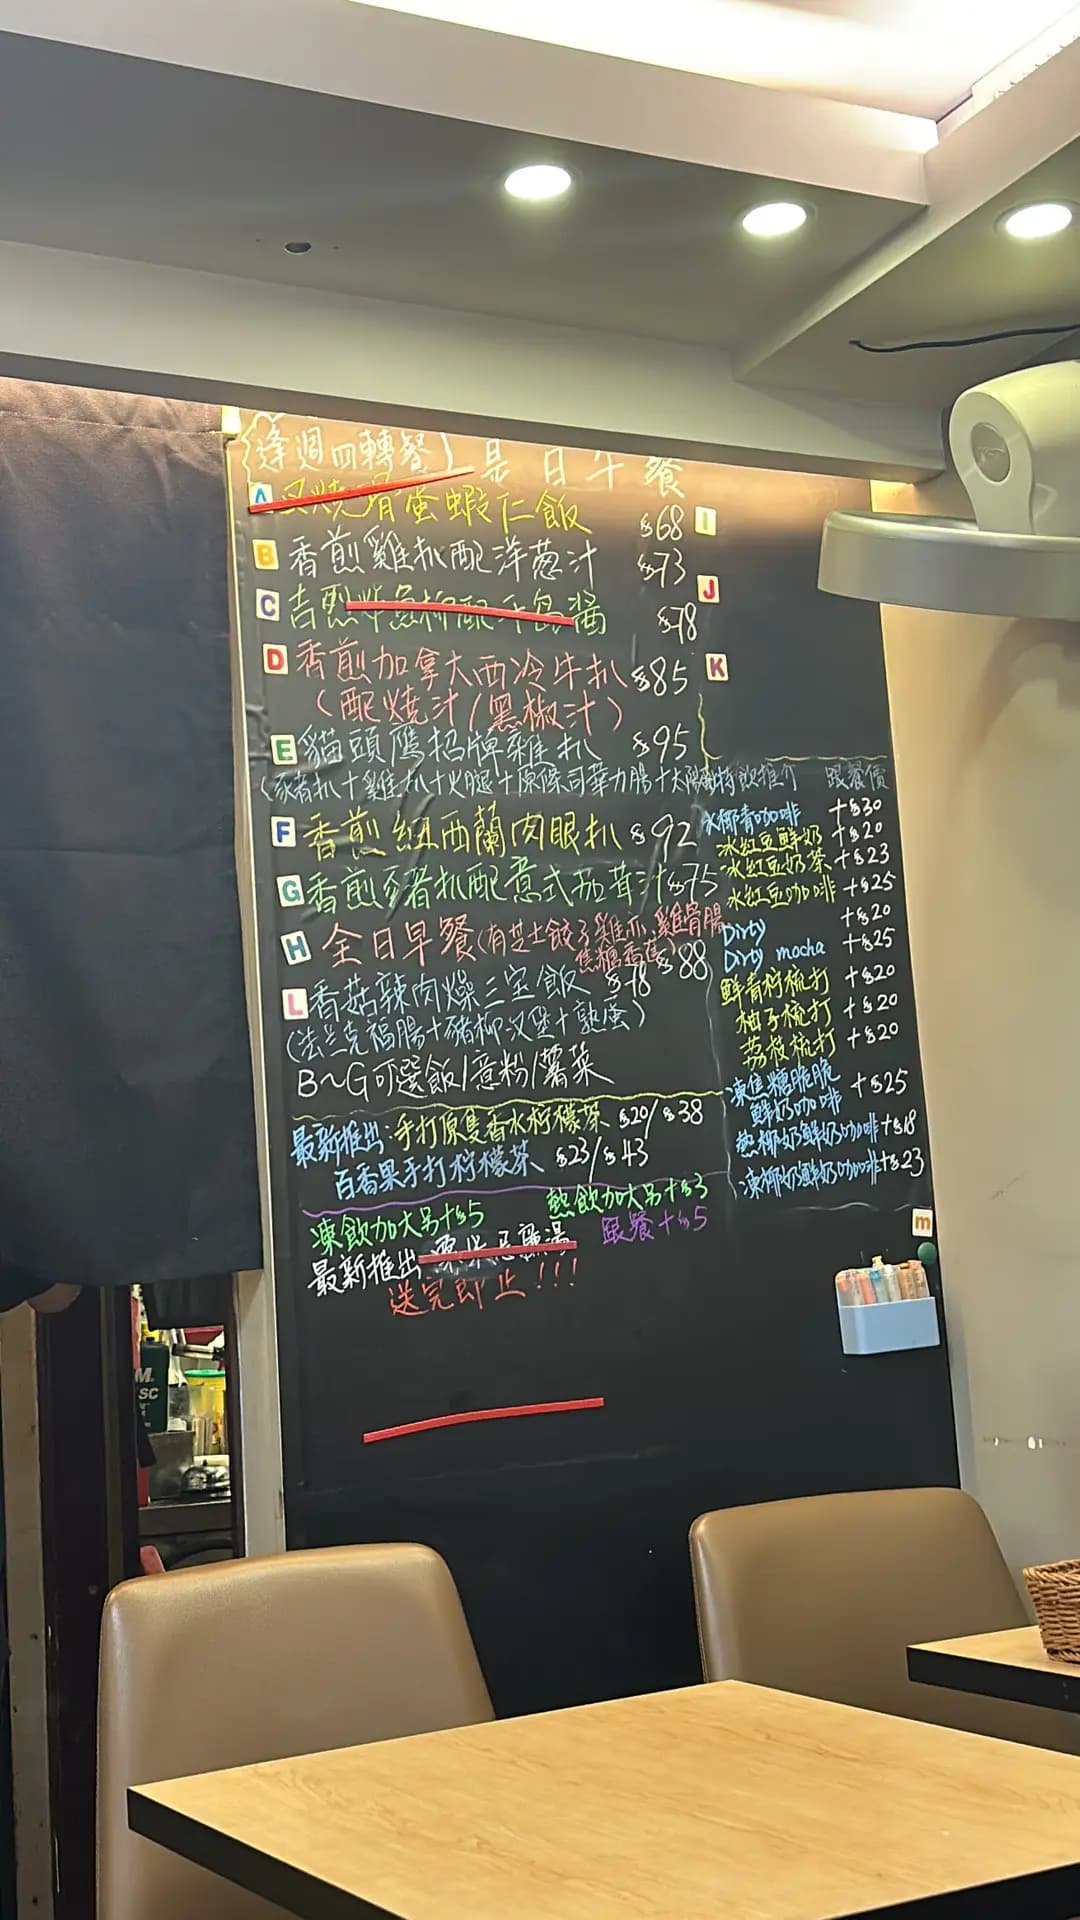 逢週四轉餐 是日午餐
A 叉燒滑蛋蝦仁飯 $68
B 香煎雞扒配洋葱汁 $73
C 吉烈炸魚柳配 醬 $78
D 香煎加拿大西冷牛扒 $85
(配燒汁/黑椒汁)
E 貓頭鷹招牌雜扒 $95
(豬扒+雞扒+火腿+原條司華力腸+太陽
F 香煎紐西蘭肉眼扒 $92
G 香煎豬扒配意式茄茸汁 $75
H 全日早餐(有芝士餃子雞亦,雞骨腸
焦糖香蕉) $88
L 香菇辣肉燥三宝飯 $78
(法兰克福腸+豬柳汉堡+熟蛋)
B~G可選飯/意粉/薯菜
最新推出:手打原隻香水柠檬茶 $20/$38
百香果手打柠檬茶 $23/$43
凍飲加大另+$5 熱飲加大另+$3
最新推出 湯 跟餐+$5
送完即止!!!
I
J
K
特飲推介 跟餐價
冰椰青咖啡 +$30
冰紅豆鮮奶 +$20
冰紅豆奶茶 +$23
冰紅豆咖啡 +$25
Dirty +$20
Dirty mocha +$25
鮮青柠梳打 +$20
柚子梳打 +$20
荔枝梳打 +$20
凍焦糖脆脆
鮮奶咖啡 +$25
熱椰奶鮮奶咖啡 +$18
凍椰奶鮮奶咖啡 +$23
m
M.
SC